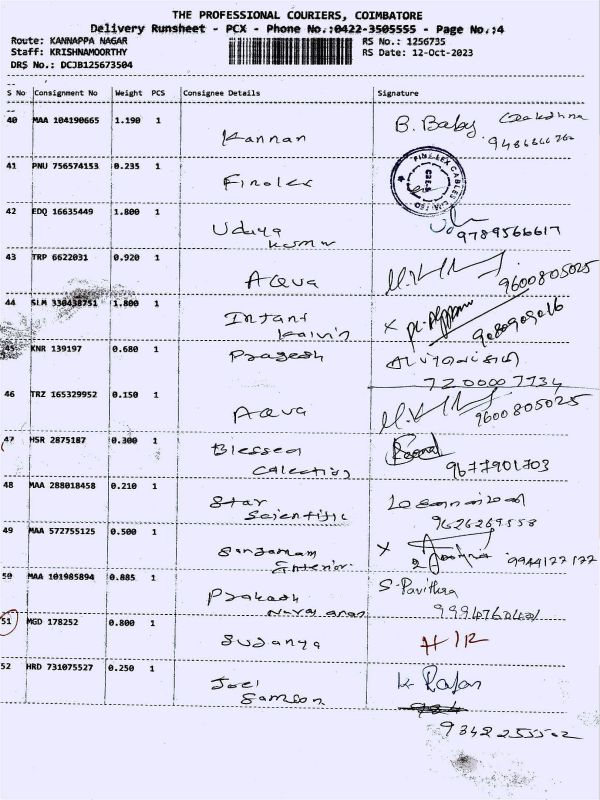 THE PROFESSIONAL COURIERS, COIMBATORE
Delivery Runsheet - PCX - Phone No.:0422-3505555 - Page No.:4
Route: KANNAPPA NAGAR RS No.: 1256735
Staff: KRISHNAMOORTHY RS Date: 12-Oct-2023
DRS No.: DCJB125673504
S No Consignment No Weight PCS Consignee Details Signature
40 MAA 104190665 1.190 1 Kannan B. Baby
41 PNU 756574153 0.235 1 Finolex FINOLEX CABLES LIMITED CBE
42 EDQ 16635449 1.800 1 Udaya
Kumar 9789566617
43 TRP 6622031 0.920 1 Aqua 9600805025
44 SLM 330438751 1.800 1 Infant
Kalvin x 9080909016
45 KNR 139197 0.680 1 Pragash
7200007734
46 TRZ 165329952 0.150 1 Aqua 9600805025
47 HSR 2875187 0.300 1 Blessed
Calection 9677901703
48 MAA 288018458 0.210 1 Star
Scientific 9626269558
49 MAA 572755125 0.500 1 Sangamam
Interior x 9944122122
50 MAA 101985894 0.885 1 Prakash
S. Pavithra
51 MGD 178252 0.800 1 Sujanya H/R
52 HRD 731075527 0.250 1 Joel
Samson K Rajan
9842255502